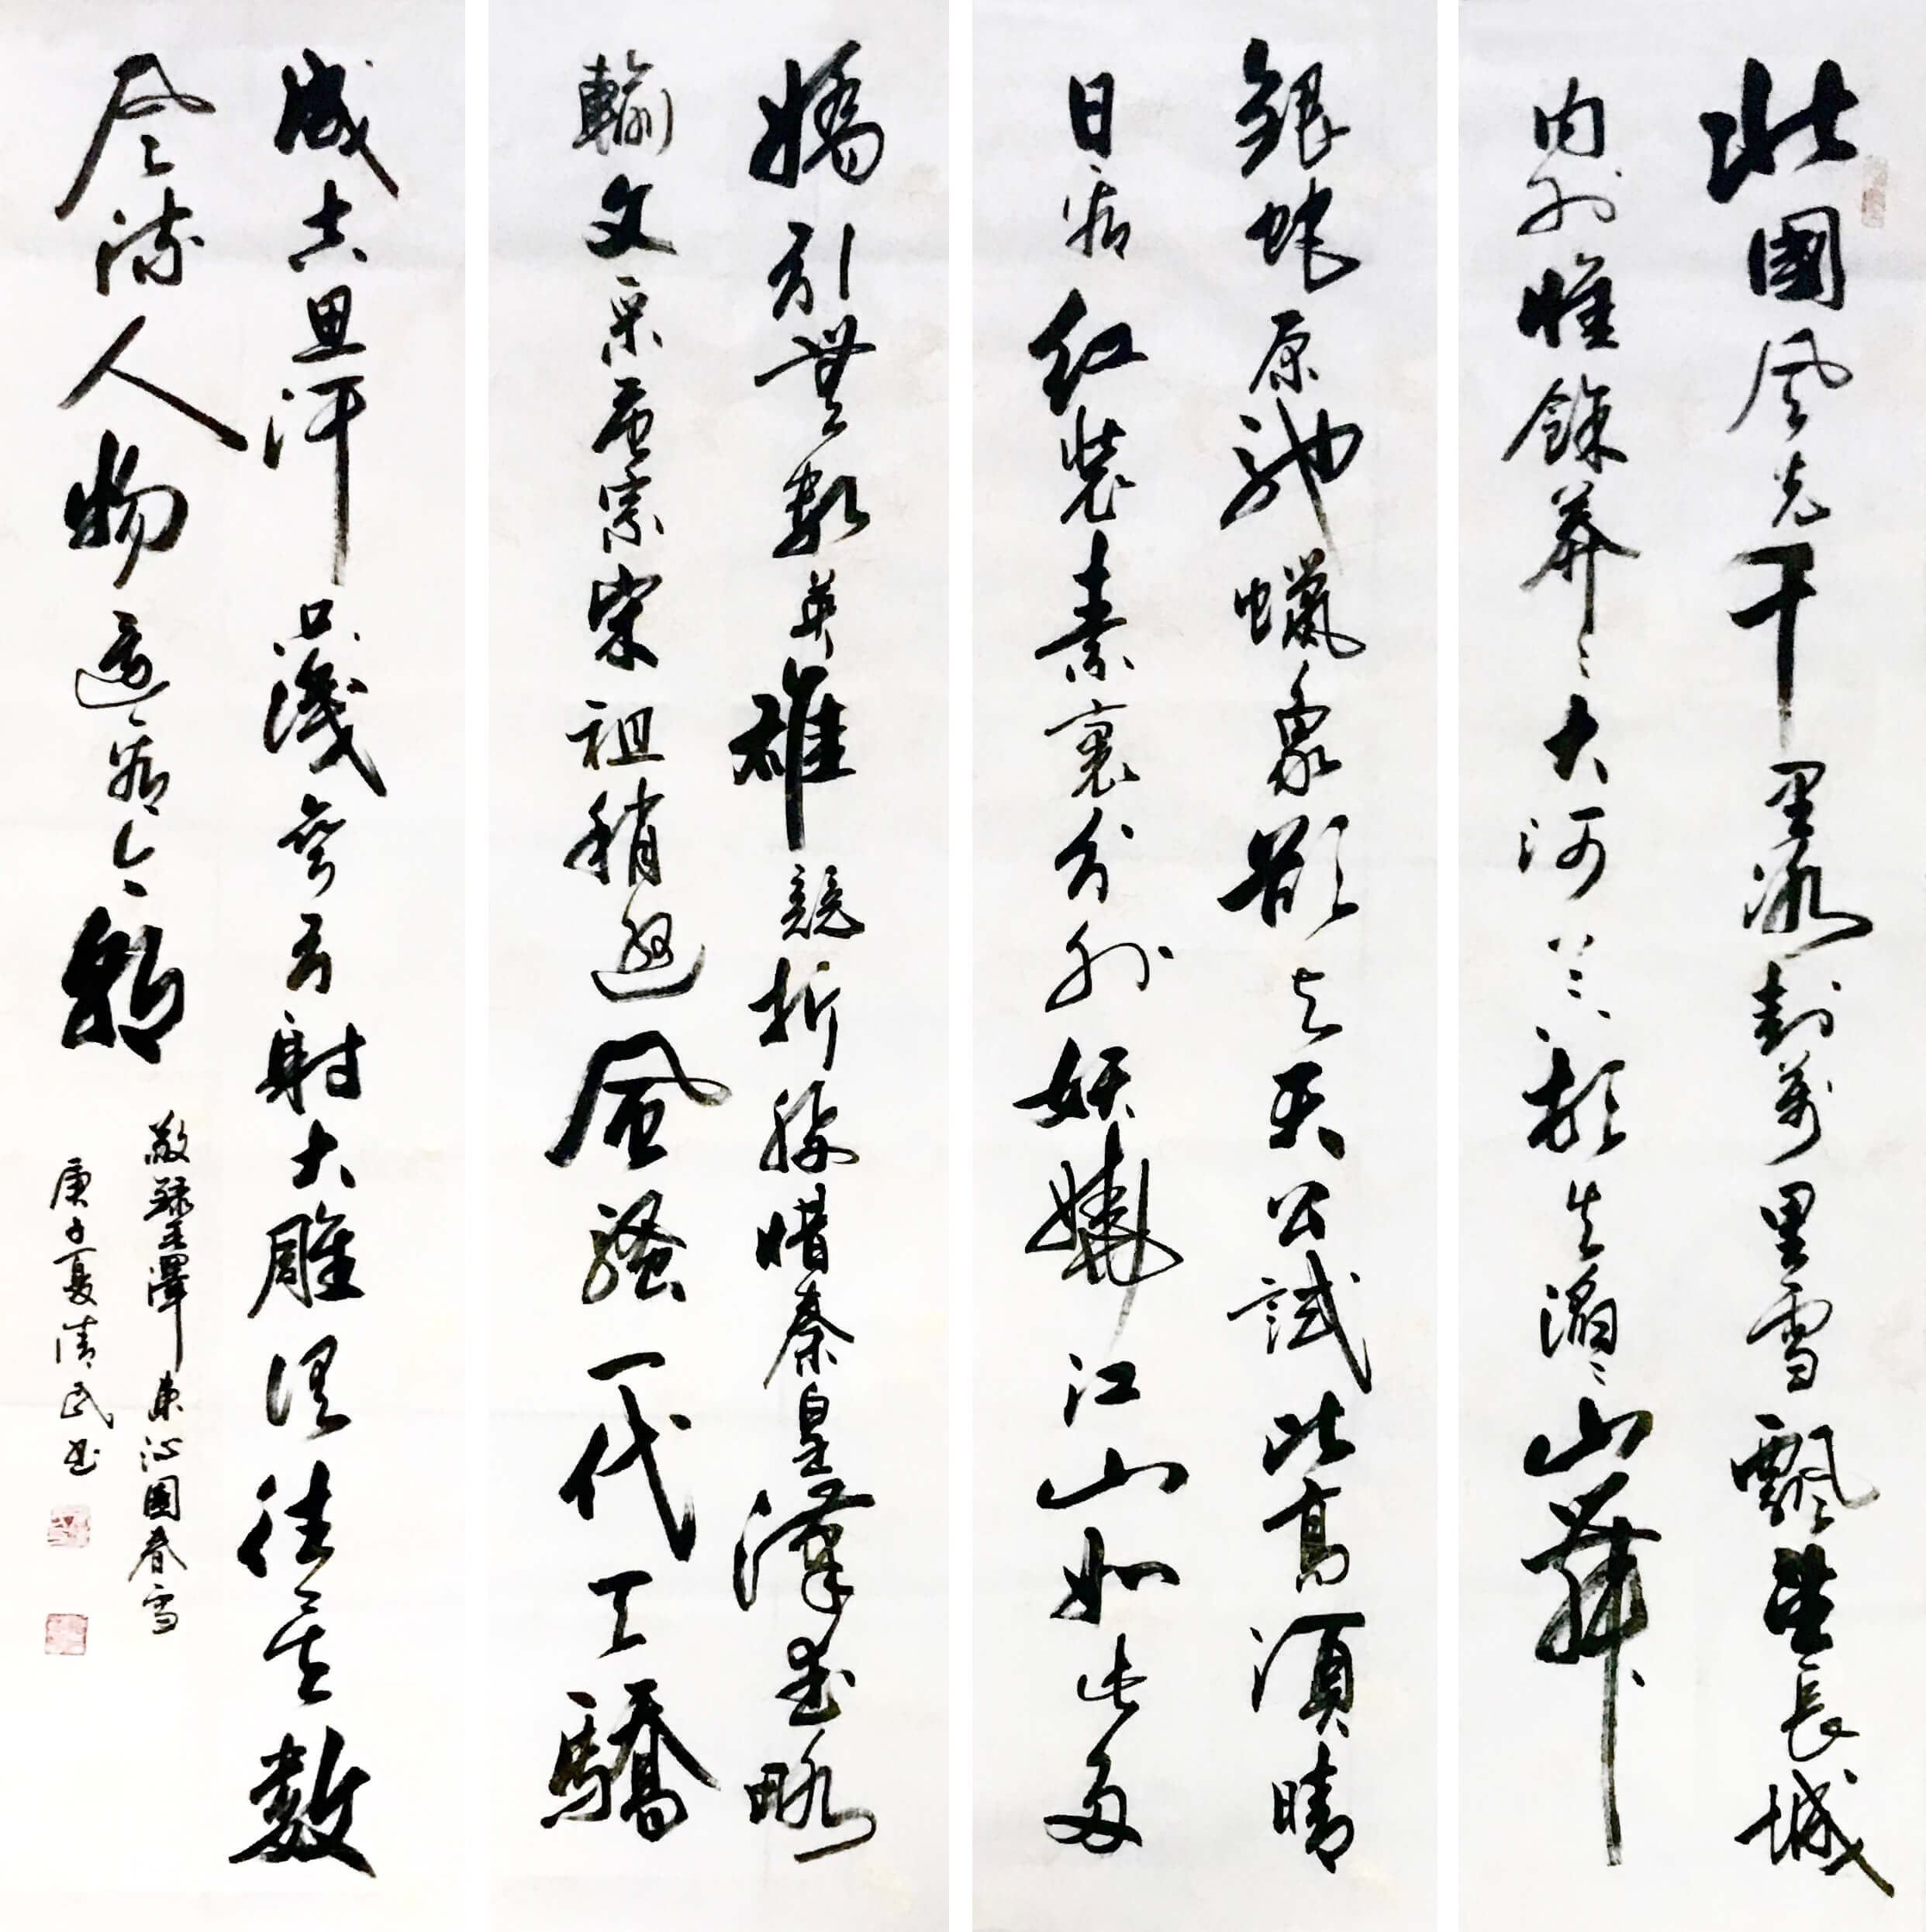 北國風光千里冰封萬里雪飄望長城
内外惟餘莽〻大河上下頓失滔〻山舞
銀蛇原馳蠟象欲与天公試比高須晴
日看红裝素裹分外妖嬈江山如此多
嬌引無數英雄競折腰惜秦皇漢武略
輸文采唐宗宋祖稍遜風騷一代天驕
成吉思汗只識彎弓射大雕俱往矣數
風流人物還看今朝
敬録毛澤東沁園春雪
庚子夏清武书